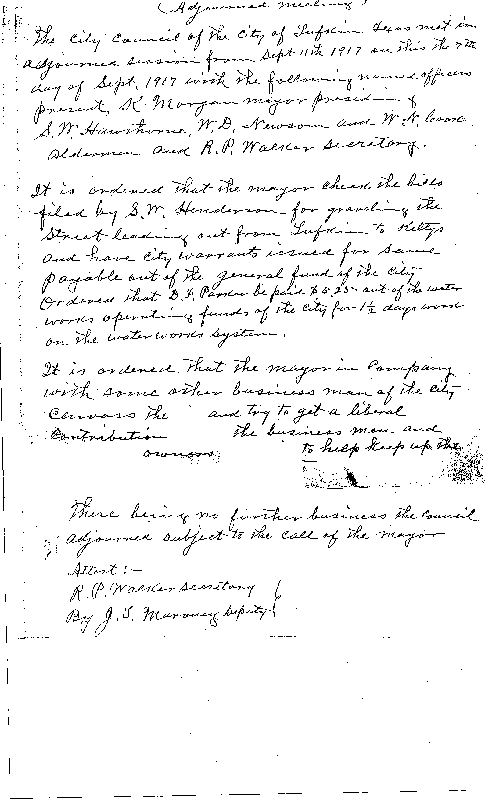 (Adjourned meeting)
The City Council of the City of Lufkin Texas met in
adjourned session from Sept 11th 1917 on this the 7th
day of Sept. 1917 with the following named officers
present, K. Morgan mayor presiding &
S.W. Hawthorne, W.D. Newsom and W.N.
aldermen and R.P. Walker Secretary.
It is ordered that the mayor check the bills
filed by S.W. Henderson for graveling the
Street leading out from Lufkin to Keltys
and have City warrants issued for same
payable out of the general fund of the City
Ordered that B.F. Parker be paid $5.25 out of the water
works operating funds of the City for 1½ days work
on the water works system.
It is ordered that the mayor in Company
with some other business man of the City
Canvass the and try to get a liberal
Contribution the business men and
owners to help keep up the
There being no further business the Council
adjourned subject to the call of the mayor
Attest:-
R.P. Walker Secretary
By J.S. Maroney Deputy